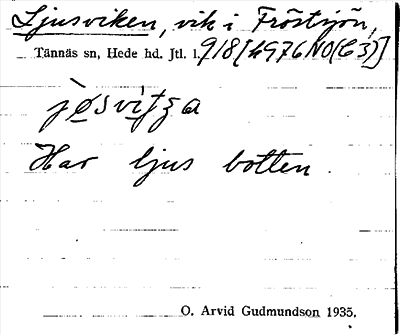 Ljusviken, vik i Fröstsjön,
Tännäs sn, Hede hd. Jtl. l. 918[4976NO(C3)]
Har ljus botten
O. Arvid Gudmundson 1935.